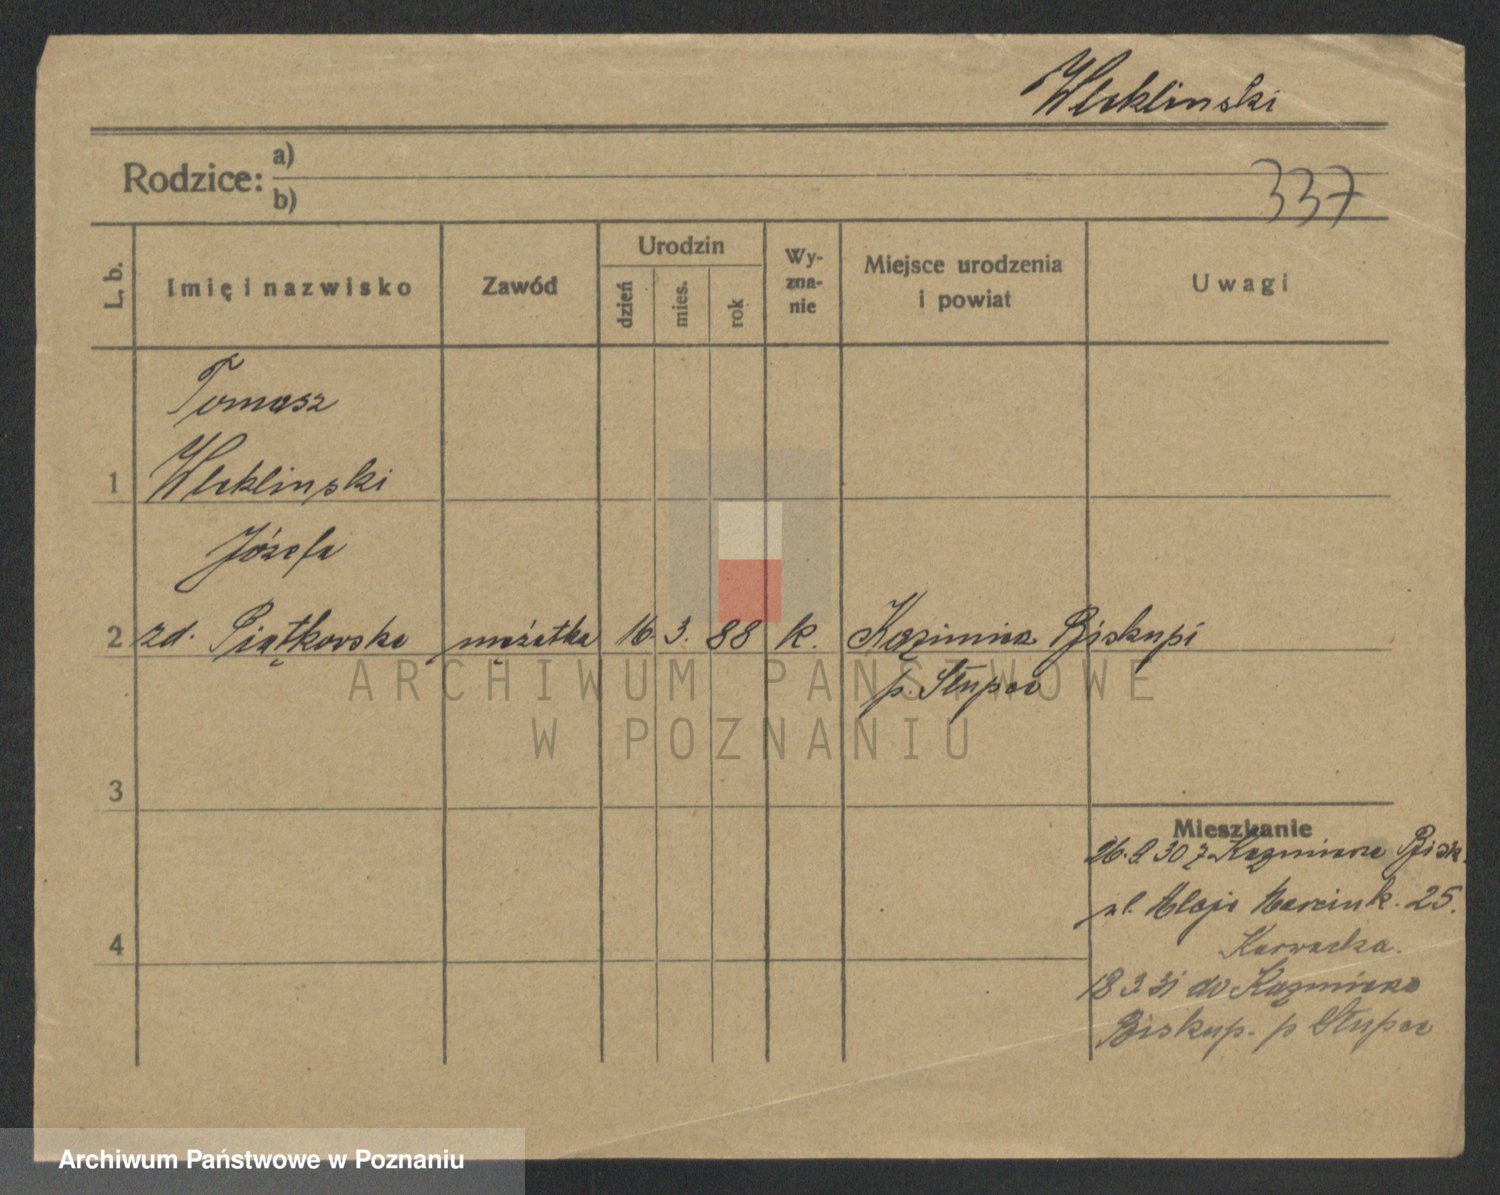 Wleklinski
Rodzice: a)
b)
337
L. b.
Imię i nazwisko
Zawód
Urodzin
dzień
mies.
rok
Wy-
zna-
nie
Miejsce urodzenia
i powiat
Uwagi
Tomasz
1 Wleklinski
Józefa
2 zd. Piątkowska mężatka 16. 3. 88 k. Kazimierz Biskupi
p. Słupca
ARCHIWUM PAŃSTWOWE
W POZNANIU
3
Mieszkanie
26. 30 z Kazmierza Bisk.
ul. Marcink. 25.
4
18 3 31 do Kazmierza
Biskup. p Słupca
Archiwum Państwowe w Poznaniu